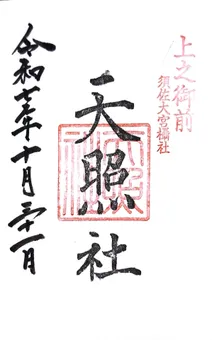 上之御前
須佐大宮攝社
天照社
令和七年十月三十一日